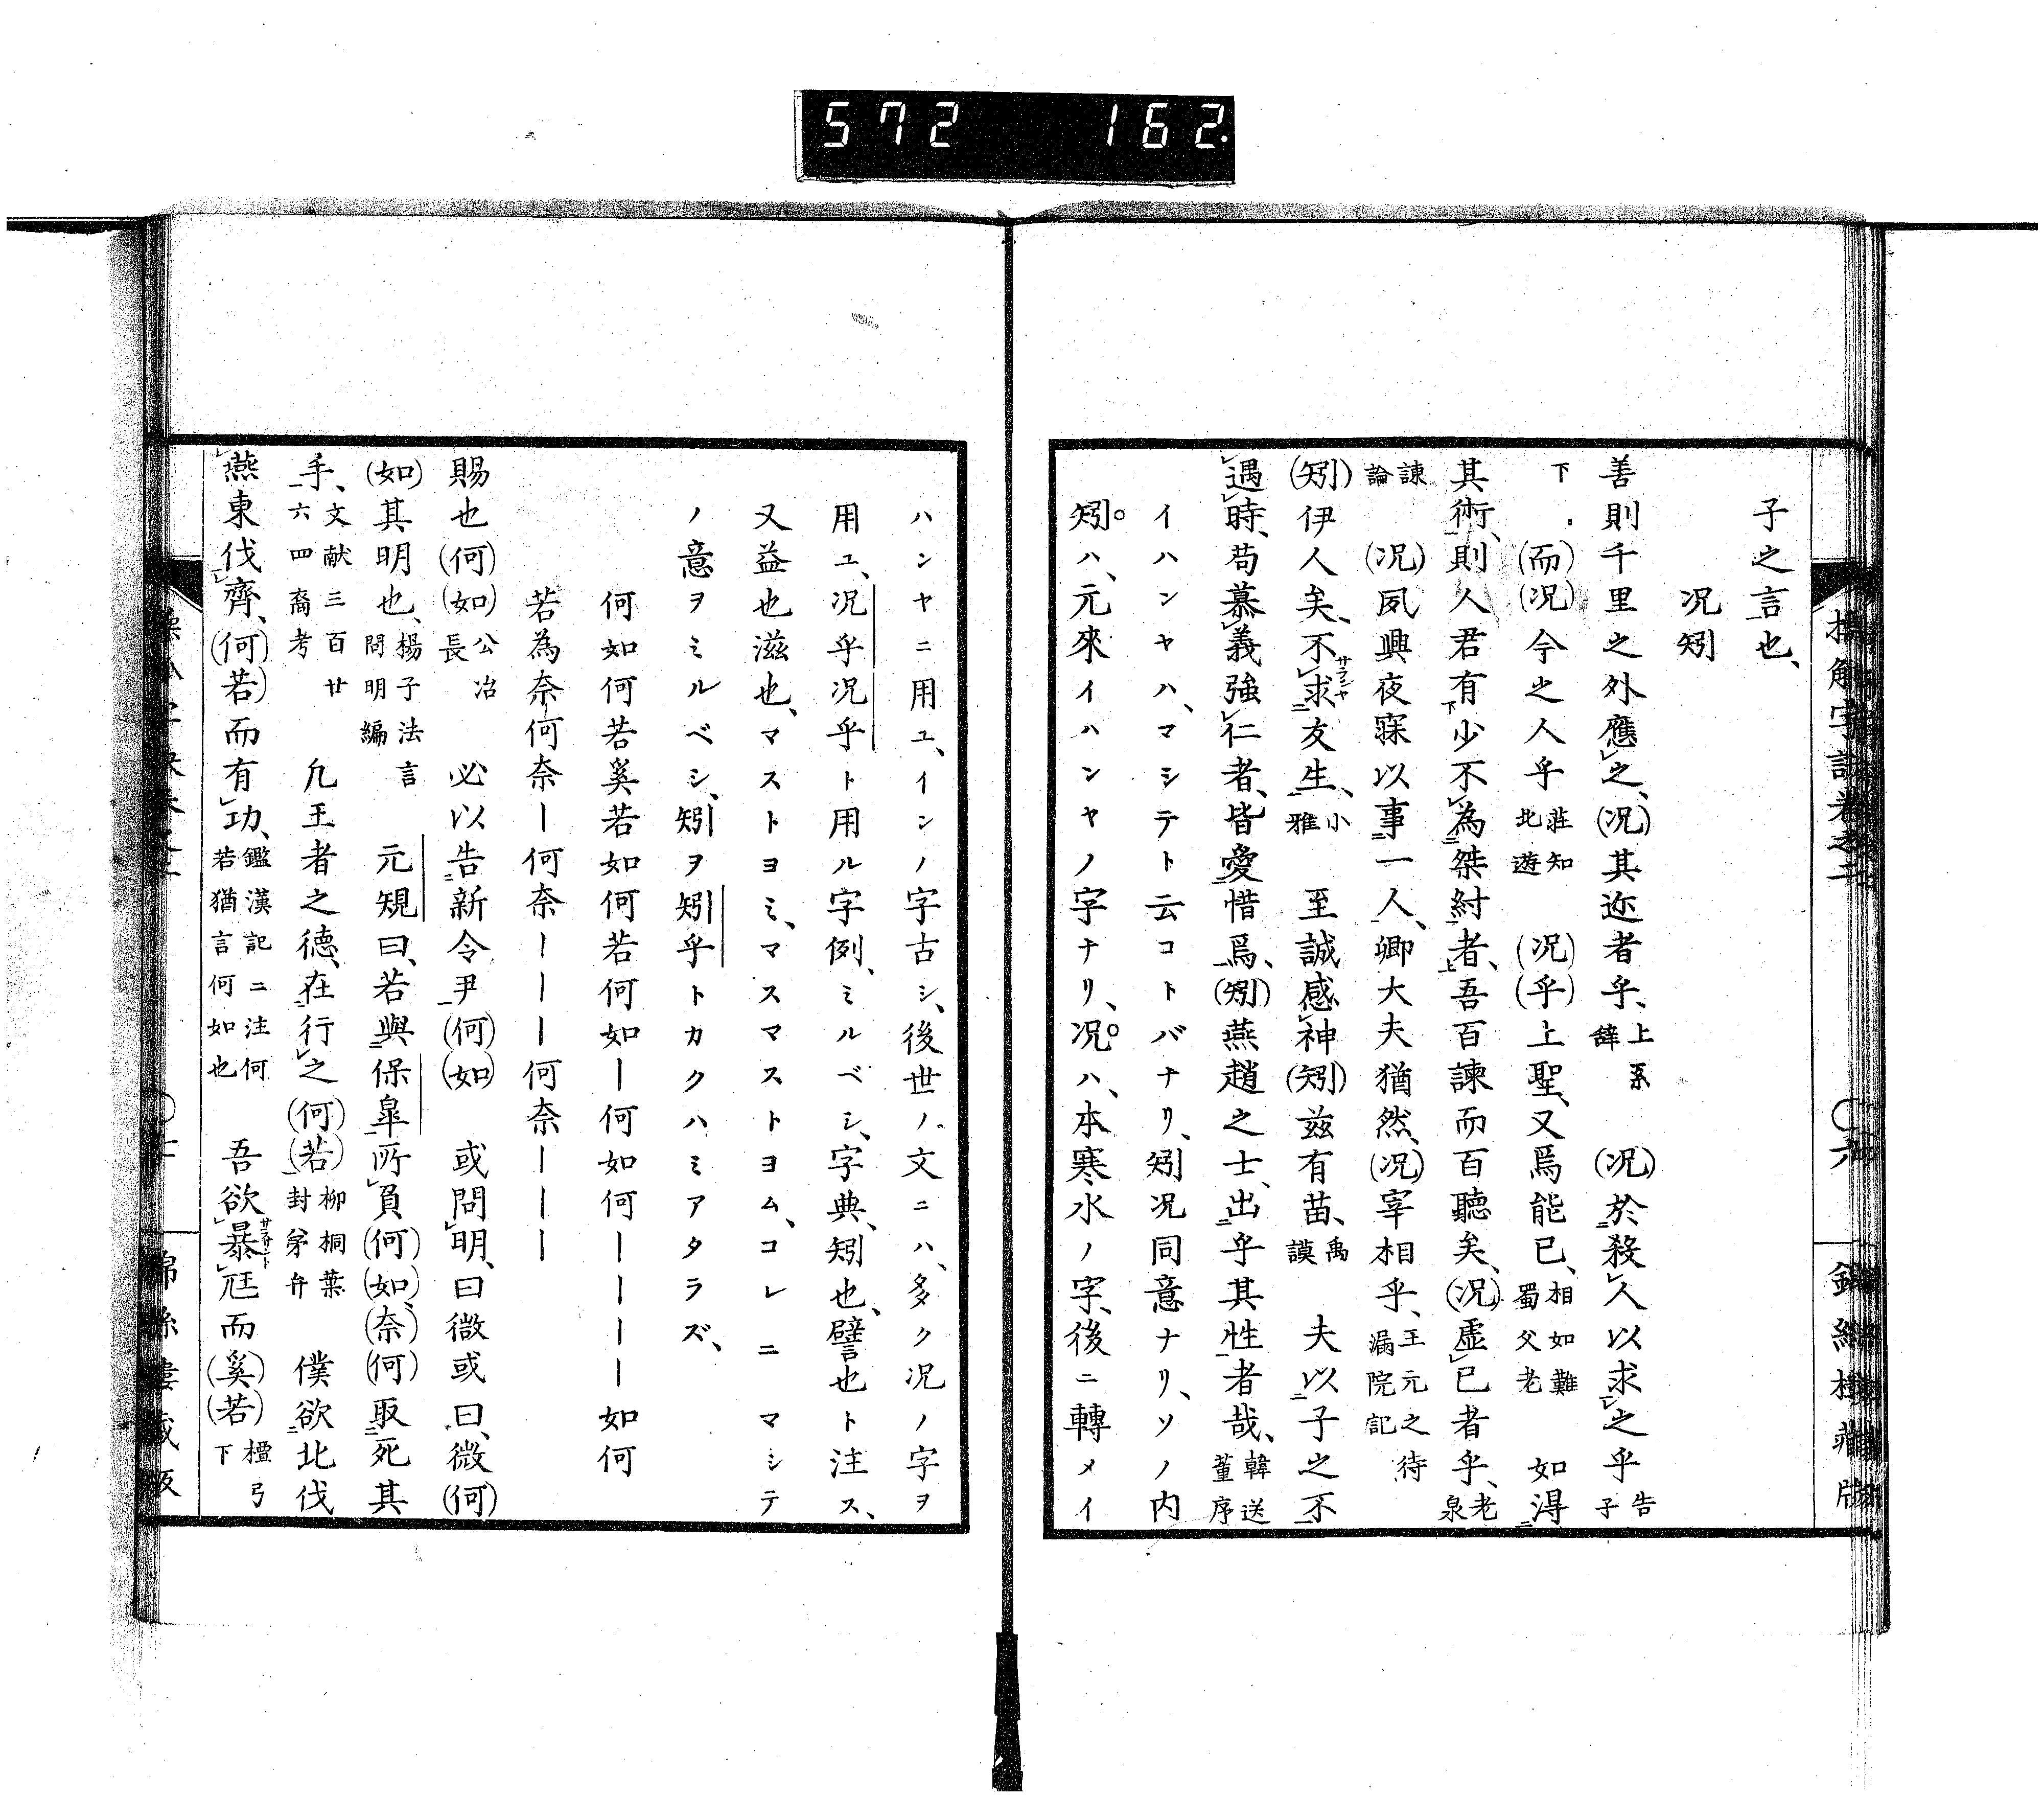 572 162.
子之言也、
况矧
善則千里之外應之、(况)其迩者乎、上系辭 (况)於殺人以求之乎告子
下 (而)(况)今之人乎莊知北遊 (况)(乎)上聖、又焉能已、相如難蜀父老 如淂
其術、則人君有少不為桀紂者、吾百諫而百聽矣、(况)虛已者乎、老泉
諫論 (况)夙興夜寐以事一人、卿大夫猶然、(况)宰相乎、王元之待漏院記
(矧)伊人矣、不求友生、小雅 至誠感神(矧)兹有苗、禹謨 夫以子之不
遇時、苟慕義強仁者、皆愛惜焉、(矧)燕趙之士、出乎其性者哉、韓送董序
イハンヤハ、マシテト云コトバナリ、矧况同意ナリ、ソノ内
矧ハ、元來イハンヤノ字ナリ、况ハ、本寒水ノ字、後ニ轉メイ
ハンヤニ用ユ、インノ字古シ、後世ノ文ニハ、多ク况ノ字ヲ
用ユ、况乎况乎ト用ル字例、ミルベシ、字典、矧也、譬也ト注ス、
又益也滋也、マストヨミ、マスマストヨム、コレニマシテ
ノ意ヲミルベシ、矧ヲ矧乎トカクハミアタラズ、
何如何若奚若如何若何如ー何如何ーーーー如何
若為奈何奈ー何奈ーーー何奈ーーー
賜也(何)(如)公冶長 必以告新令尹(何)(如) 或問明、曰微或曰、微(何)
(如)其明也、楊子法言問明編 元規曰、若與保皐所負(何)(如)(奈)(何)取死其
手、文献三百廿六四裔考 凢王者之德、在行之(何)(若)柳桐葉封弟弁 僕欲北伐
燕東伐齊、(何)(若)而有功、鑑漢記二注何若猶言何如也 吾欲暴尫而(奚)(若)檀弓下